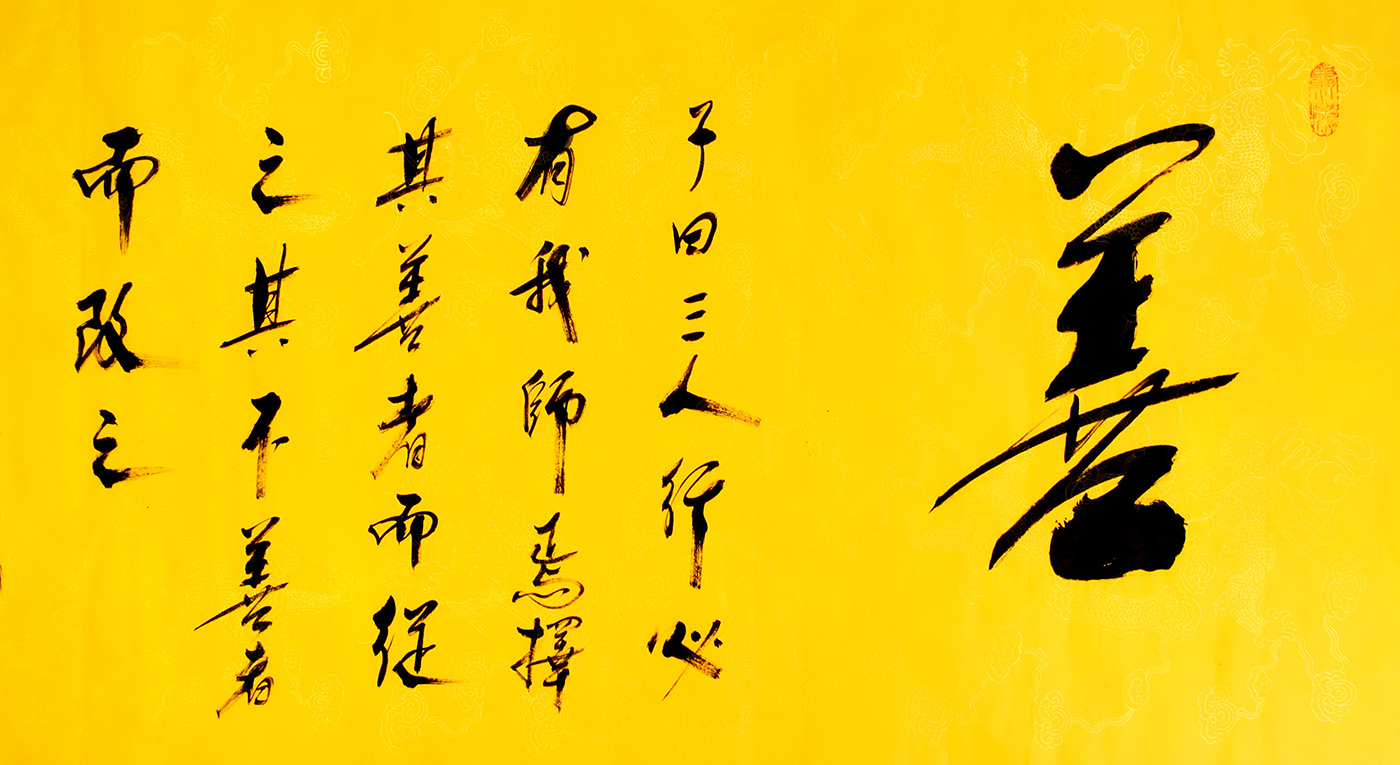 善
子曰三人行必
有我師焉擇
其善者而從
之其不善者
而改之